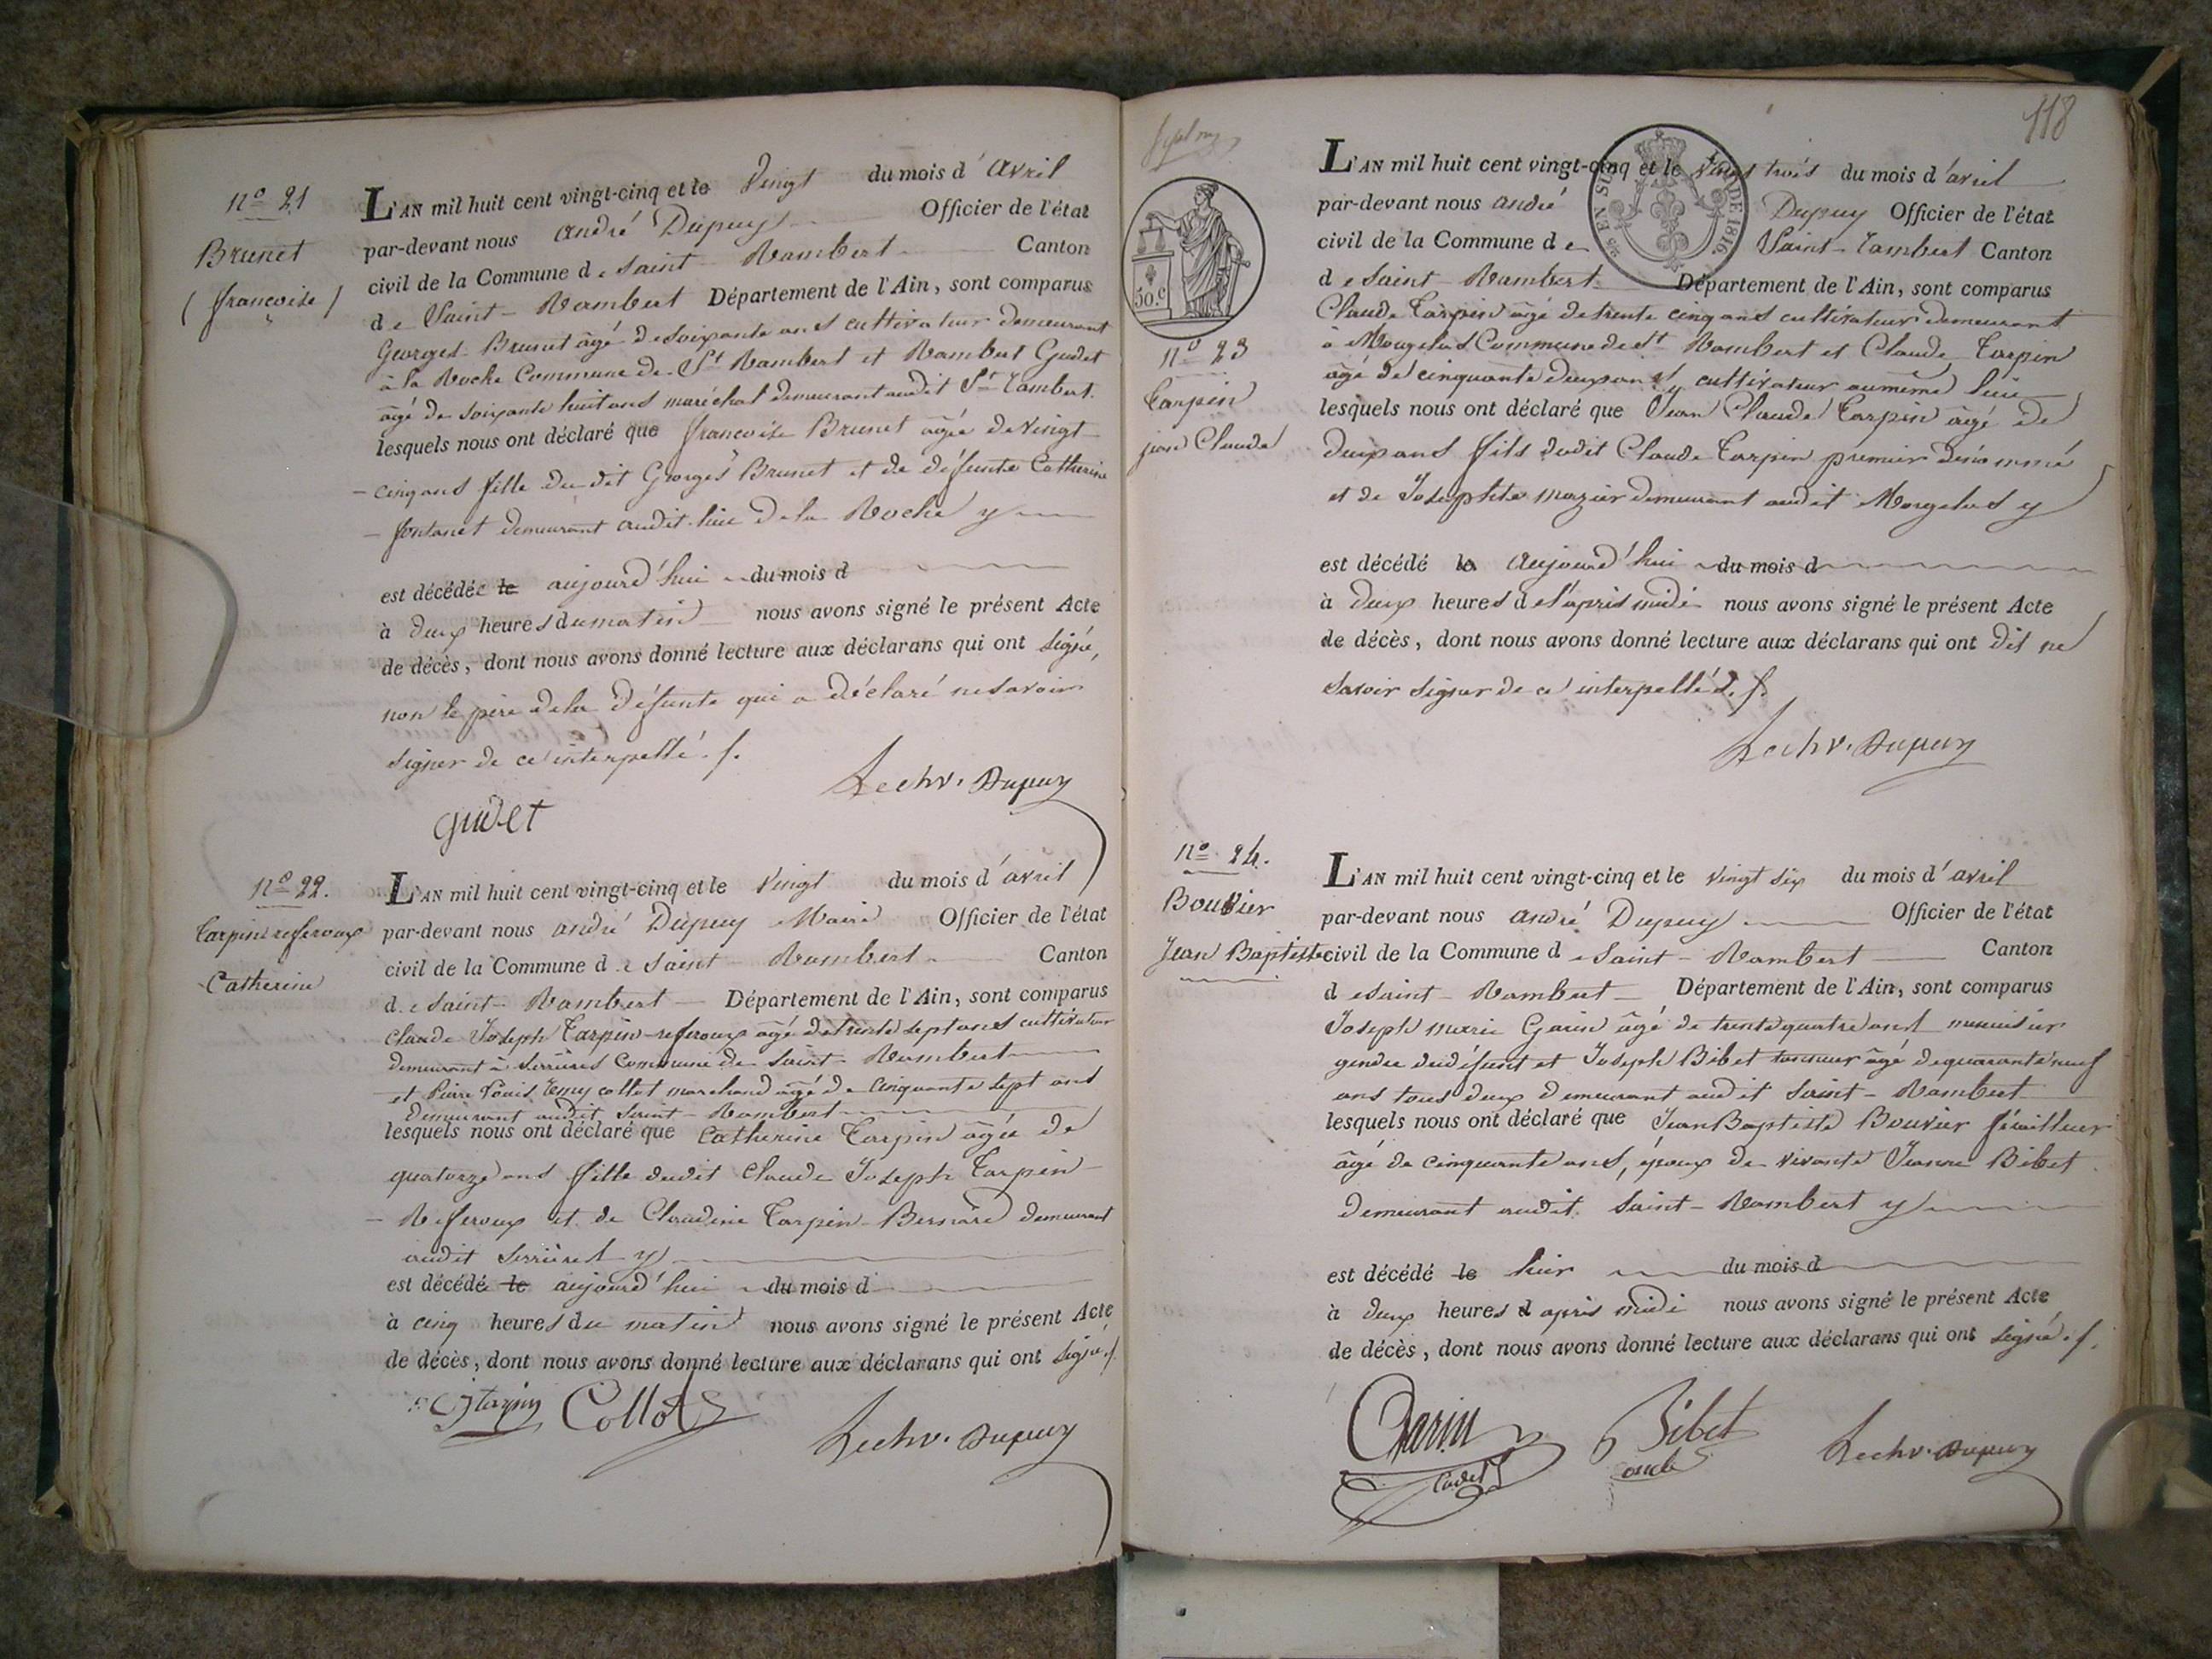 nº 21
Brunet
( françoise )
L'AN mil huit cent vingt-cinq et le vingt du mois d'avril
par-devant nous andré Dupuy Officier de l'état
civil de la Commune de Saint-Rambert Canton
de Saint-Rambert Département de l'Ain, sont comparus
Georges Brunet âgé de soixante ans cultivateur demeurant
à la Roche Commune de St Rambert et Rambert Gudet
âgé de soixante huit ans maréchal demeurant audit St Rambert.
lesquels nous ont déclaré que françoise Brunet âgée de vingt
cinq ans fille du dit Georges Brunet et de défunte Catherine
fontanet demeurant audit lieu de la Roche y
est décédée le aujourd'hui du mois d
à deux heures du matin nous avons signé le présent Acte
de décès, dont nous avons donné lecture aux déclarans qui ont signé,
non le père de la défunte qui a déclaré ne savoir
signer de ce interpellé. /.
gudet
Lechv. Dupuy
nº 22.
Tarpin refferoux
Catherine
L'AN mil huit cent vingt-cinq et le vingt du mois d'avril
par-devant nous andré Dupuy Maire Officier de l'état
civil de la Commune de Saint-Rambert Canton
de Saint-Rambert Département de l'Ain, sont comparus
claude Joseph Tarpin-refferoux âgé de trente sept ans cultivateur
demeurant à Serrières Commune de Saint-Rambert
et Pierre Louis Remy collot marchand âgé de cinquante sept ans
demeurant audit Saint-Rambert
lesquels nous ont déclaré que Catherine Tarpin âgée de
quatorze ans fille dudit Claude Joseph Tarpin
Refferoux et de Claudine Tarpin-Bernard demeurant
audit Serrières y
est décédé le aujourd'hui du mois d
à cinq heures du matin nous avons signé le présent Acte
de décès, dont nous avons donné lecture aux déclarans qui ont signé. /.
Collot
Lechv. Dupuy
118
50.c
EN SUS
LOI DE 1816
nº 23
Tarpin
jean Claude
L'AN mil huit cent vingt-cinq et le vingt trois du mois d'avril
par-devant nous andré Dupuy Officier de l'état
civil de la Commune de Saint-Rambert Canton
de Saint-Rambert Département de l'Ain, sont comparus
Claude Tarpin âgé de trente cinq ans cultivateur demeurant
à Morgelas Commune de St Rambert et Claude Tarpin
âgé de cinquante deux ans, cultivateur au même lieu
lesquels nous ont déclaré que Jean Claude Tarpin âgé de
deux ans fils dudit Claude Tarpin premier dénommé
et de Josephte mazuir demeurant audit Morgelas y
est décédé le aujourd'hui du mois d
à deux heures de l'après midi nous avons signé le présent Acte
de décès, dont nous avons donné lecture aux déclarans qui ont dit ne
savoir signer de ce interpellés. /.
Lechv. Dupuy
nº 24.
Bouvier
Jean Baptiste
L'AN mil huit cent vingt-cinq et le vingt six du mois d'avril
par-devant nous andré Dupuy Officier de l'état
civil de la Commune de Saint-Rambert Canton
de Saint-Rambert Département de l'Ain, sont comparus
Joseph marie Garin âgé de trente quatre ans menuisier
gendre du défunt et Joseph Bibet tanneur âgé de quarante neuf
ans tous deux demeurant audit Saint-Rambert
lesquels nous ont déclaré que Jean Baptiste Bouvier férailleur
âgé de cinquante ans, époux de vivante Jeanne Bibet
demeurant audit Saint-Rambert y
est décédé le hier du mois d
à deux heures d après midi nous avons signé le présent Acte
de décès, dont nous avons donné lecture aux déclarans qui ont signé. /.
Garin
Cadet
Bibet
oncle
Lechv. Dupuy